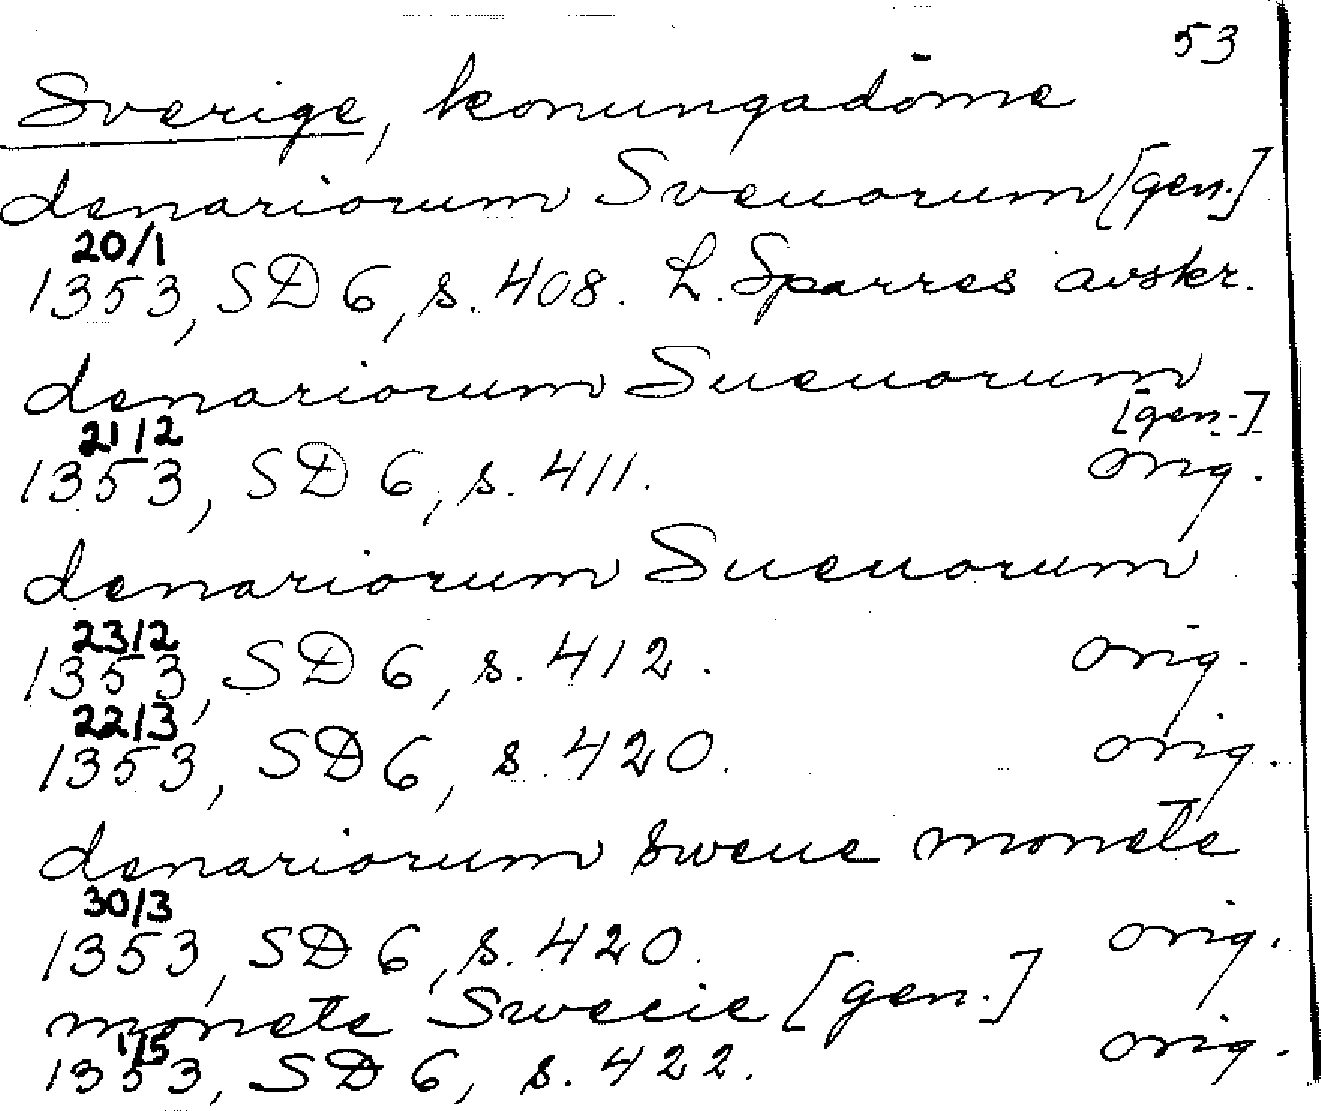 53
Sverige, konungadöme
denariorum Sveuorum [gen.]
20/1
1353, SD 6, s. 408. L. Sparres avskr.
denariorum Sueuorum
[gen.]
21/2
1353, SD 6, s. 411. orig.
denariorum Sueuorum
23/2
1353, SD 6, s. 412. orig.
22/3
1353, SD 6, s. 420. orig.
denariorum sweue monete
30/3
1353, SD 6, s. 420. orig.
monete Swecie [gen.]
1/5
1353, SD 6, s. 422. orig.